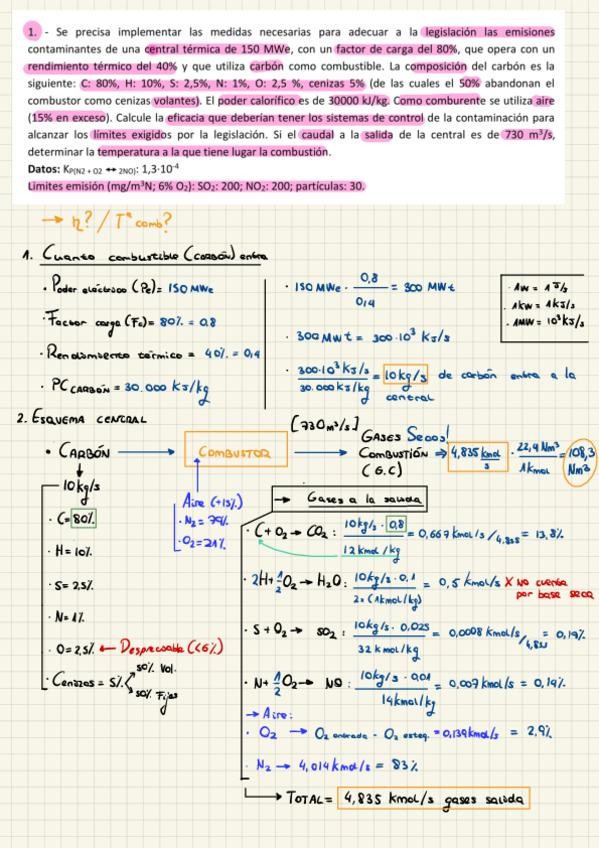 1. - Se precisa implementar las medidas necesarias para adecuar a la legislación las emisiones
contaminantes de una central térmica de 150 MWe, con un factor de carga del 80%, que opera con un
rendimiento térmico del 40% y que utiliza carbón como combustible. La composición del carbón es la
siguiente: C: 80%, H: 10%, S: 2,5%, N: 1%, O: 2,5 %, cenizas 5% (de las cuales el 50% abandonan el
combustor como cenizas volantes). El poder calorífico es de 30000 kJ/kg. Como comburente se utiliza aire
(15% en exceso). Calcule la eficacia que deberían tener los sistemas de control de la contaminación para
alcanzar los límites exigidos por la legislación. Si el caudal a la salida de la central es de 730 m³/s,
determinar la temperatura a la que tiene lugar la combustión.
Datos: KP(N2 + O2 ↔ 2NO): 1,3·10⁻⁴
Limites emisión (mg/m³N; 6% O₂): SO₂: 200; NO₂: 200; partículas: 30.
→ η? / Tª comb?
1. Cuanto combustible (carbón) entra
· Poder eléctrico (Pe)= 150 MWe
· Factor carga (Fc)= 80% = 0.8
· Rendimiento térmico = 40% = 0,4
· PC CARBÓN = 30.000 KJ/kg
· 150 MWe · 0,8 / 0,4 = 300 MWt
· 300 MWt = 300·10³ KJ/s
· 300·10³ KJ/s / 30.000 KJ/kg = 10 kg/s de carbón entra a la
central
· 1W = 1 J/s
· 1KW = 1KJ/s
· 1MW = 10³KJ/s
2. ESQUEMA CENTRAL
[730m³/s]
• CARBÓN → COMBUSTOR → GASES Secos!
COMBUSTIÓN ⇒ 4,835 kmol/s · 22,4 Nm³ / 1kmol = 108,3 Nm³
(G.C)
10kg/s
· C= 80%
· H= 10%
· S= 2,5%
· N= 1%
· O= 2,5% ← Despreciable (<6%)
· Cenizas = 5% 50% Vol.
50% Fijas
Aire (+15%)
· N₂ = 79%
· O₂ = 21%
→ Gases a la salida
· C + O₂ → CO₂ : 10kg/s · 0,8 / 12 kmol/kg = 0,667 kmol/s /4,835 = 13,8%
· 2H + ½O₂ → H₂O : 10kg/s · 0,1 / 2x(1kmol/kg) = 0,5 kmol/s X No cuenta
por base seca
· S + O₂ → SO₂ : 10kg/s · 0,025 / 32 kmol/kg = 0,0008 kmol/s /4,835 = 0,19%
· N + ½O₂ → NO : 10kg/s · 0,01 / 14kmol/kg = 0,007 kmol/s = 0,19%
→ Aire:
· O₂ → O₂ entrada - O₂ esteq. = 0,139 kmol/s = 2,9%
· N₂ → 4,014 kmol/s = 83%
→ TOTAL = 4,835 kmol/s gases salida